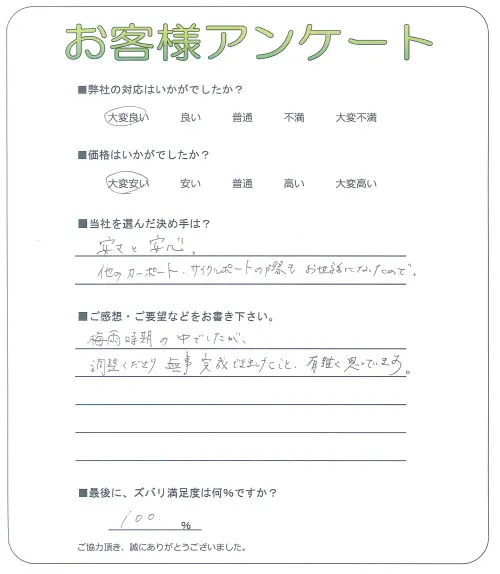 お客様アンケート
■弊社の対応はいかがでしたか？
大変良い 良い 普通 不満 大変不満
■価格はいかがでしたか？
大変安い 安い 普通 高い 大変高い
■当社を選んだ決め手は？
安さと安心。
他のカーポート、サイクルポートの際もお世話になったので。
■ご感想・ご要望などをお書き下さい。
梅雨時期の中でしたが、
調整くださり無事完成できましたこと、有難く思っています。
■最後に、ズバリ満足度は何％ですか？
100 %
ご協力頂き、誠にありがとうございました。